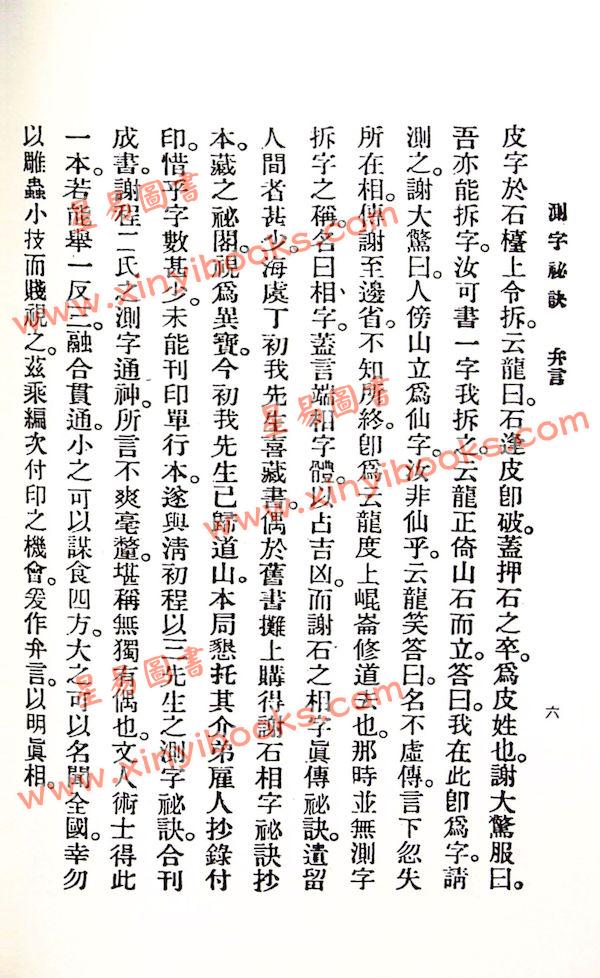 測字祕訣 弁言
六
皮字於石檯上令拆。云龍曰。石逢皮卽破。蓋押石之卒。爲皮姓也。謝大驚服曰。
吾亦能拆字。汝可書一字我拆之。云龍正倚山石而立。答曰。我在此卽爲字。請
測之。謝大驚曰。人傍山立爲仙字。汝非仙乎。云龍笑答曰。名不虛傳。言下忽失
所在。相傳謝至邊省。不知所終。卽爲云龍度上崐崙修道去也。那時並無測字
拆字之稱。名曰相字。蓋言端相字體。以占吉凶。而謝石之相字眞傳祕訣。遺留
人間者甚少。海虞丁初我先生喜藏書。偶於舊書攤上購得謝石相字祕訣抄
本。藏之祕閣。視爲異寶。今初我先生已歸道山。本局懇托其介弟雇人抄錄付
印。惜乎字數甚少。未能刊印單行本。遂與淸初程以三先生之測字祕訣。合刊
成書。謝程二氏之測字通神。所言不爽毫釐。堪稱無獨有偶也。文人術士得此
一本。若能舉一反三。融合貫通。小之可以謀食四方。大之可以名聞全國。幸勿
以雕蟲小技而賤視之。茲乘編次付印之機會。爰作弁言。以明眞相。
星易圖書
www.xinyibooks.com
星易圖書
www.xinyibooks.com
星易圖書
www.xinyibooks.com